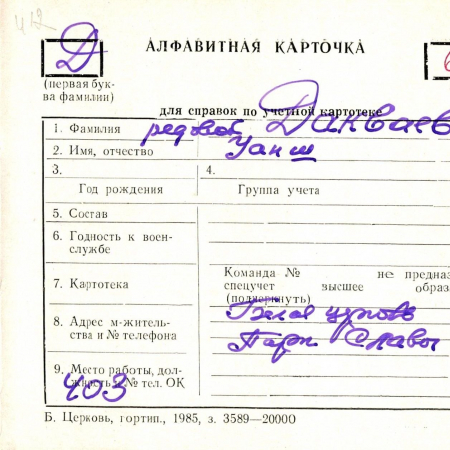 412
Д
АЛФАВИТНАЯ КАРТОЧКА
(первая бук-
ва фамилии)
для справок по учетной картотеке
1. Фамилия рядовой Дакваев
2. Имя, отчество Уан ш
3.
4.
Год рождения
Группа учета
5. Состав
6. Годность к воен-
службе
7. Картотека
Команда № не предназ
спецучет высшее образ
(подчеркнуть)
8. Адрес м-житель-
ства и № телефона
Белая церковь
Парк Славы
9. Место работы, дол-
жность и № тел. ОК
403
Б. Церковь, гортип., 1985, з. 3589—20000